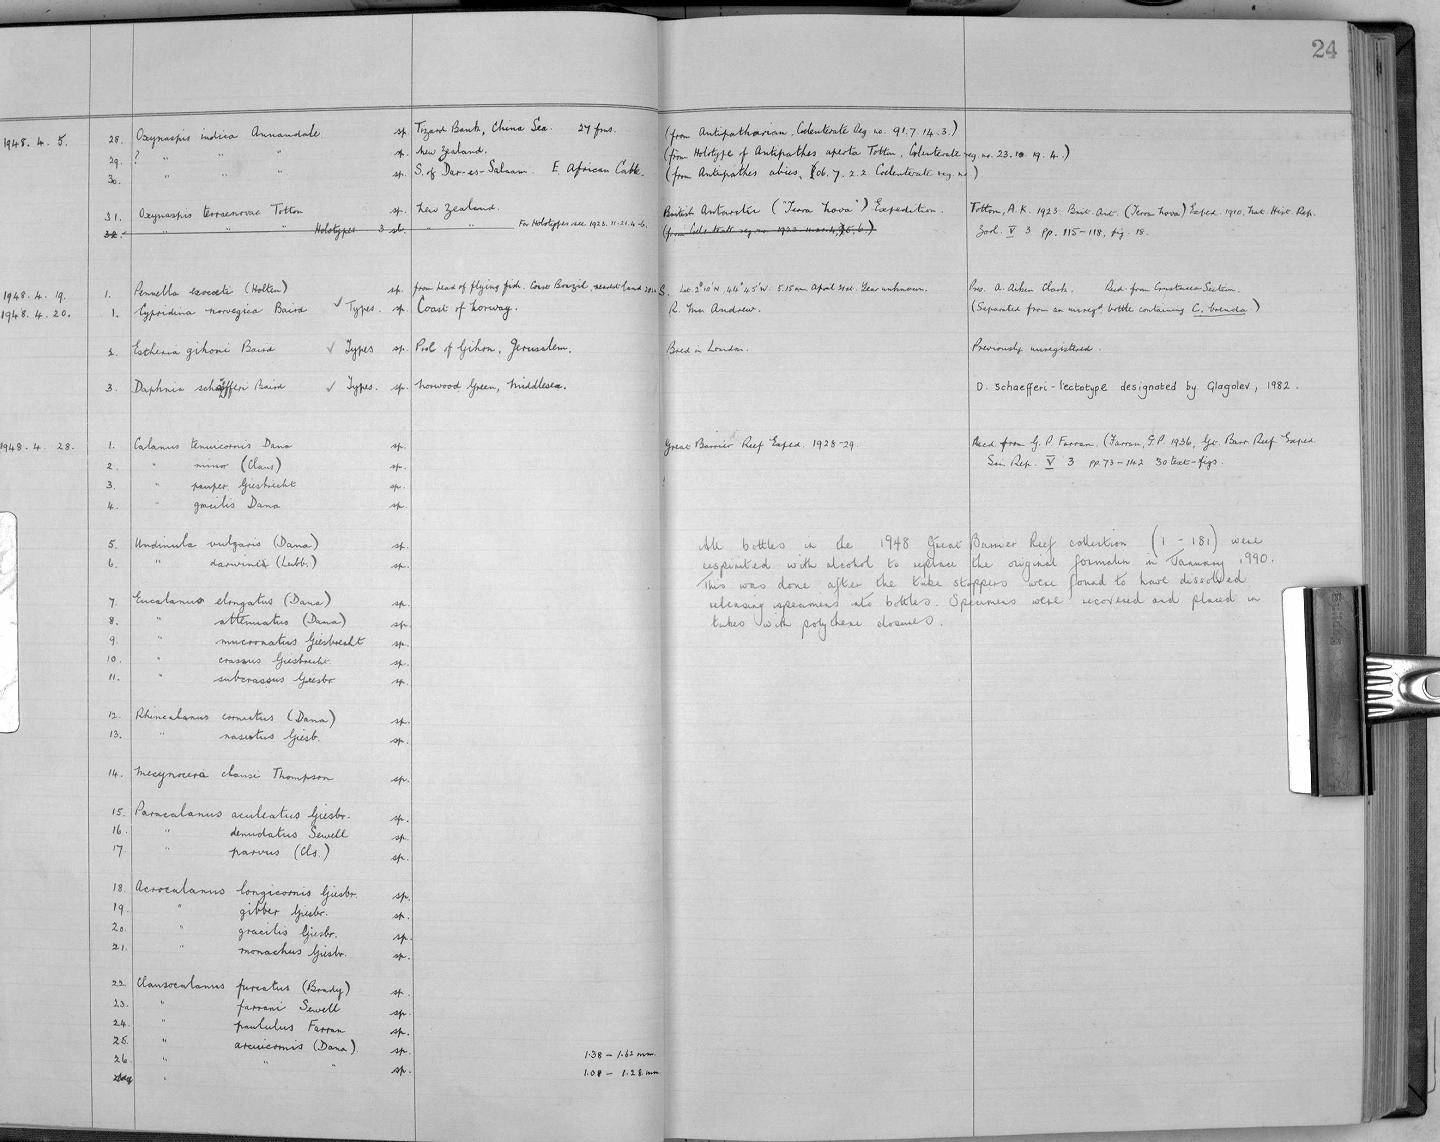 24
1948. 4. 5. 28. Oxynaspis indica Annandale sp. Tizard Bank, China Sea. 27 fms. (from Antipatharian, Coelenterate Reg. no. 91. 7. 14. 3.)
29. ? " " " sp. New Zealand. (from Holotype of Antipathes aperta Totton, Coelenterate reg. no. 23. 10. 19. 4.)
30. " " " sp. S. of Dar-es-Salaam. E. African Cable. (from Antipathes abies, 06. 7. 2. 2 Coelenterate reg. no.)
31. Oxynaspis terraenovae Totton sp. New Zealand. British Antarctic ("Terra Nova") Expedition. Totton, A.K. 1923. Brit. Ant. (Terra Nova) Exped. 1910. Nat. Hist. Rep.
32. " " " Holotypes 3 sp. " " For Holotypes see 1923. 11. 21. 4-6. Zool. V 3 pp. 115-118, fig. 18.
1948. 4. 19. 1. Pennella exocoeti (Holten) sp. from head of flying fish. Coast Brazil, nearest land S. Lat. 2° 10' N, 44° 45' W. 5.15am April Year unknown. Pres. A. Aiken Clark. Recd. from Crustacea Section.
1948. 4. 20. 1. Cypridina norvegica Baird ✓ Types. sp. Coast of Norway. R. Mc Andrew. (Separated from an unregd bottle containing C. brenda)
2. Estheria gihoni Baird ✓ Types sp. Pool of Gihon, Jerusalem. Bred in London. Previously unregistered.
3. Daphnia schaefferi Baird ✓ Types. sp. Norwood Green, Middlesex. D. schaefferi - lectotype designated by Glagolev, 1982.
1948. 4. 28. 1. Calanus tenuicornis Dana sp. Great Barrier Reef Exped. 1928-29. Recd. from G. P. Farran. (Farran, G.P. 1936, Gt. Barr. Reef Exped.
2. " minor (Claus) sp. Sci. Rep. V 3 pp. 73-142 30 text-figs.
3. " pauper Giesbrecht sp.
4. " gracilis Dana sp.
5. Undinula vulgaris (Dana) sp. All bottles in the 1948 Great Barrier Reef collection (1 - 181) were
6. " darwinii (Lubb.) sp. respirited with alcohol to replace the original formalin in January 1990.
This was done after the tube stoppers were found to have dissolved
7. Eucalanus elongatus (Dana) sp. releasing specimens into bottles. Specimens were recovered and placed in
8. " attenuatus (Dana) sp. tubes with polythene closures.
9. " mucronatus Giesbrecht sp.
10. " crassus Giesbrecht sp.
11. " subcrassus Giesbr. sp.
12. Rhincalanus cornutus (Dana) sp.
13. " nasutus Giesb. sp.
14. Mecynocera clausi Thompson sp.
15. Paracalanus aculeatus Giesbr. sp.
16. " denudatus Sewell sp.
17. " parvus (Cls.) sp.
18. Acrocalanus longicornis Giesbr. sp.
19. " gibber Giesbr. sp.
20. " gracilis Giesbr. sp.
21. " monachus Giesbr. sp.
22. Clausocalanus furcatus (Brady) sp.
23. " farrani Sewell sp.
24. " paululus Farran sp.
25. " arcuicornis (Dana) sp. 1.38 - 1.62 mm.
26. " " " sp. 1.08 - 1.28 mm.